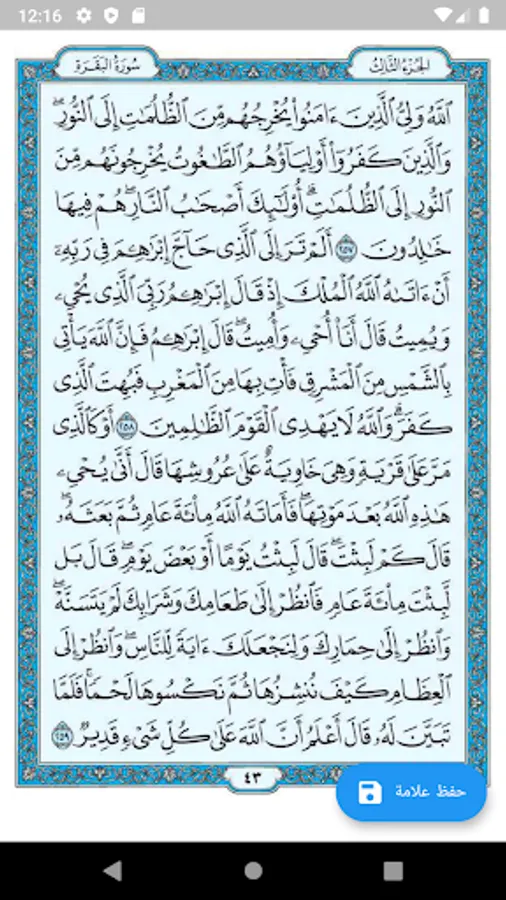 12:16
الجزء الثالث
سورة البقرة
اللَّهُ وَلِيُّ الَّذِينَ ءَامَنُوا۟ يُخْرِجُهُم مِّنَ الظُّلُمَٰتِ إِلَى النُّورِ ۖ
وَالَّذِينَ كَفَرُوٓا۟ أَوْلِيَآؤُهُمُ الطَّٰغُوتُ يُخْرِجُونَهُم مِّنَ
النُّورِ إِلَى الظُّلُمَٰتِ ۗ أُو۟لَٰٓئِكَ أَصْحَٰبُ النَّارِ ۖ هُمْ فِيهَا
خَٰلِدُونَ ٢٥٧ أَلَمْ تَرَ إِلَى الَّذِى حَآجَّ إِبْرَٰهِۦمَ فِى رَبِّهِۦٓ
أَنْ ءَاتَىٰهُ اللَّهُ الْمُلْكَ إِذْ قَالَ إِبْرَٰهِۦمُ رَبِّىَ الَّذِى يُحْىِۦ
وَيُمِيتُ قَالَ أَنَا۠ أُحْىِۦ وَأُمِيتُ ۖ قَالَ إِبْرَٰهِۦمُ فَإِنَّ اللَّهَ يَأْتِى
بِالشَّمْسِ مِنَ الْمَشْرِقِ فَأْتِ بِهَا مِنَ الْمَغْرِبِ فَبُهِتَ الَّذِى
كَفَرَ ۗ وَاللَّهُ لَا يَهْدِى الْقَوْمَ الظَّٰلِمِينَ ٢٥٨ أَوْ كَالَّذِى
مَرَّ عَلَىٰ قَرْيَةٍ وَهِىَ خَاوِيَةٌ عَلَىٰ عُرُوشِهَا قَالَ أَنَّىٰ يُحْىِۦ
هَٰذِهِ اللَّهُ بَعْدَ مَوْتِهَا ۖ فَأَمَاتَهُ اللَّهُ مِا۟ئَةَ عَامٍ ثُمَّ بَعَثَهُۥ ۖ
قَالَ كَمْ لَبِثْتَ ۖ قَالَ لَبِثْتُ يَوْمًا أَوْ بَعْضَ يَوْمٍ ۖ قَالَ بَل
لَّبِثْتَ مِا۟ئَةَ عَامٍ فَانظُرْ إِلَىٰ طَعَامِكَ وَشَرَابِكَ لَمْ يَتَسَنَّهْ ۖ
وَانظُرْ إِلَىٰ حِمَارِكَ وَلِنَجْعَلَكَ ءَايَةً لِّلنَّاسِ ۖ وَانظُرْ إِلَى
الْعِظَامِ كَيْفَ نُنشِزُهَا ثُمَّ نَكْسُوهَا لَحْمًا ۚ فَلَمَّا
تَبَيَّنَ لَهُۥ قَالَ أَعْلَمُ أَنَّ اللَّهَ عَلَىٰ كُلِّ شَىْءٍ قَدِيرٌ ٢٥٩
٤٣
حفظ علامة